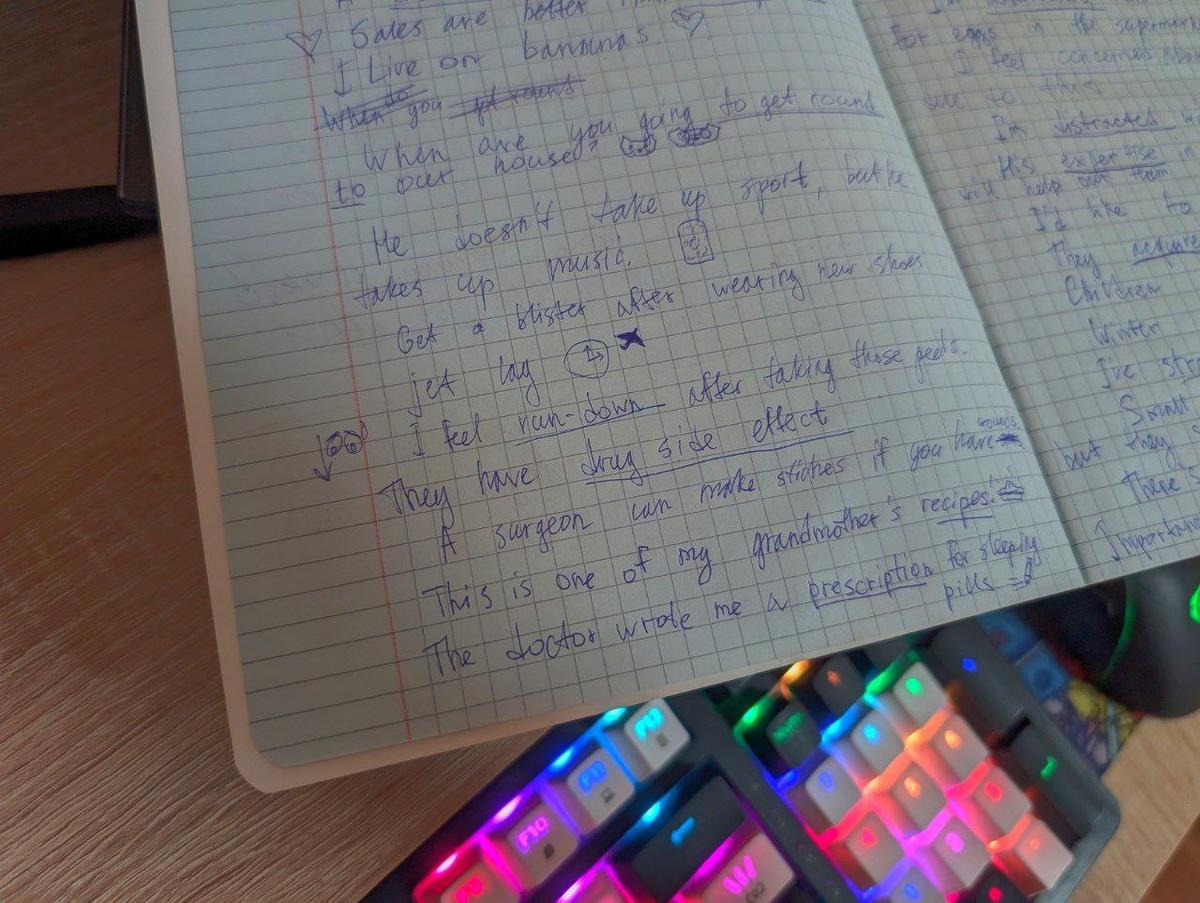 Sales are better
I Live on bananas.
When do you get round
When are you going to get round
to our house?
He doesn't take up sport, but he
takes up music.
Get a blister after wearing new shoes
jet lag
I feel run-down after taking those peels.
They have drug side effect
A surgeon can make stiches if you have wounds
This is one of my grandmother's recipes.
The doctor wrote me a prescription for sleeping
pills
I'm
for eggs in the supermark
I feel concerned
to this
I'm distracted
His expertise in
will help out them
I'd like to
They acquire
Children
Winter
I've str
Small
but they
There's
Important
F9
F10
F11
F12